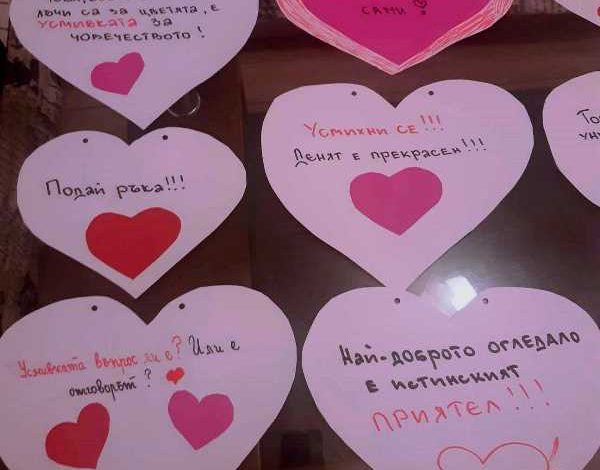 лъчи са за цветята, е
усмивката за
човечеството!
сами!
Усмихни се!!!
Денят е прекрасен!!!
Подай ръка!!!
Усмивката въпрос ли е? Или е
отговорът?
Най-доброто огледало
е истинският
приятел!!!